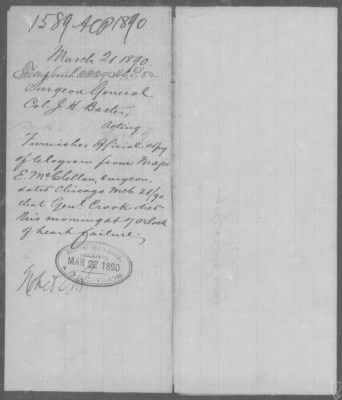 1589 ACP 1890
March 21 1890.
Surgeon General
Col. J. H. Baxter,
Acting
Furnishes Official copy
of telegram from Major
E. McClellan, Surgeon,
dated Chicago Mch 21/90
that Genl Crook died
this morning at 7 o'clock
of heart failure.
RECEIVED
MAR 22 1890